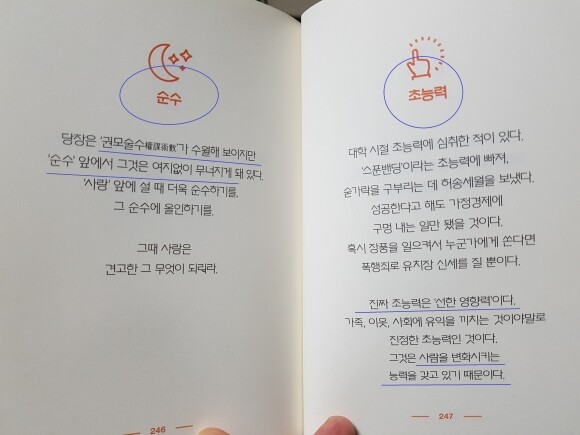 순수
당장은 '권모술수權謀術數'가 수월해 보이지만
'순수' 앞에서 그것은 여지없이 무너지게 돼 있다.
'사랑' 앞에 설 때 더욱 순수하기를,
그 순수에 올인하기를.
그때 사랑은
견고한 그 무엇이 되리라.
246
초능력
대학 시절 초능력에 심취한 적이 있다.
'스푼밴딩'이라는 초능력에 빠져,
숟가락을 구부리는 데 허송세월을 보냈다.
성공한다고 해도 가정경제에
구멍 내는 일만 됐을 것이다.
혹시 장풍을 일으켜서 누군가에게 쏜다면
폭행죄로 유치장 신세를 질 뿐이다.
진짜 초능력은 '선한 영향력'이다.
가족, 이웃, 사회에 유익을 끼치는 것이야말로
진정한 초능력인 것이다.
그것은 사람을 변화시키는
능력을 갖고 있기 때문이다.
247